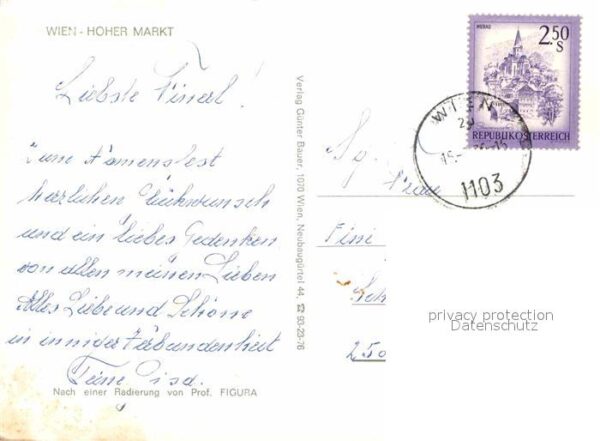 WIEN - HOHER MARKT
Liebste Fineal!
Zum Namensfest
herzlichen Glückwunsch
und ein liebes Gedenken
von allen meinen Lieben
Alles Liebe und Schöne
in inniger Verbundenheit
Deine Lisa.
Nach einer Radierung von Prof. FIGURA
Verlag Günter Bauer, 1070 Wien, Neubaugürtel 44, ☎ 93-23-76
MURAU
2.50
S
REPUBLIK ÖSTERREICH
WIEN
1103
Frau
Fini
250
privacy protection
Datenschutz